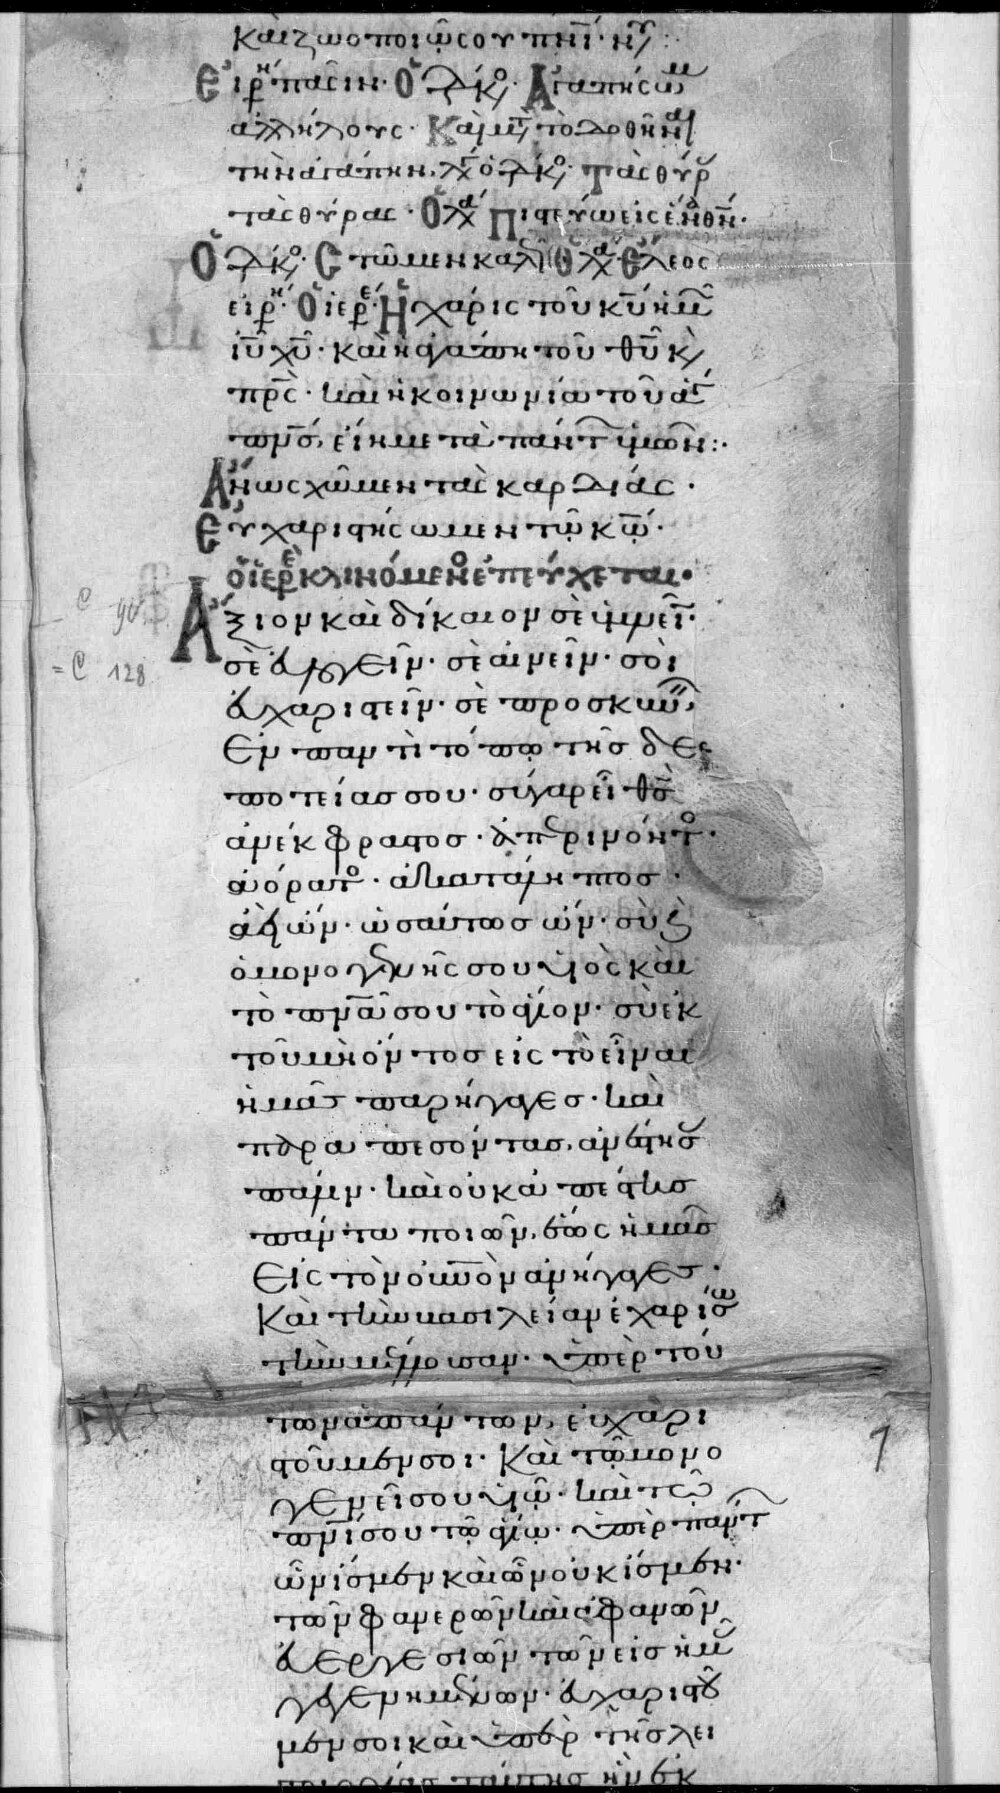 καὶ ζωοποιῶ σου πνι· νυ:
Εἰρη πᾶσιν· Ὁ δκο· Ἀγαπήσωμ
ἀλλήλους· Καὶ μτ τὸ δοθῆναι
τὴν ἀγάπην, λγ ὁ δκο· Τὰς θύρ
τὰς θύρας· Ὁ λα Πιστεύω εἰς ἕνα θν·
Ὁ δκο· Στῶμεν καλ Ὁ λα· Ἔλεος
εἰρη· Ὁ ἱερε· Ἡ χάρις τοῦ κυ ἡμ
ιυ χυ· καὶ ἡ ἀγάπη τοῦ θυ κ
πρς· καὶ ἡ κοινωνία τοῦ ἁγ
πνς, εἴη μετὰ πάντ ὑμῶν:·
Ἄνω σχῶμεν τὰς καρδίας·
Εὐχαριστήσωμεν τῷ κω·
ὁ ἱερε κλινόμενο ἐπεύχεται·
Ἄξιον καὶ δίκαιον σὲ ὑμνεῖ·
σὲ εὐλογεῖν· σὲ αἰνεῖν· σοὶ
εὐχαριστεῖν· σὲ προσκυν
Ἐν παντὶ τόπῳ τῆς δεσ
ποτείας σου· σὺ γὰρ εἶ θς
ἀνέκφραστος· ἀπερινόητο·
ἀόρατο· ἀκατάληπτος·
ἀεὶ ὤν· ὡσαύτως ὤν· σὺ κ
ὁ μονογενής σου υἱὸς καὶ
τὸ πνα σου τὸ ἅγιον· σὺ ἐκ
τοῦ μὴ ὄντος εἰς τὸ εἶναι
ἡμᾶς παρήγαγες· καὶ
παραπεσόντας, ἀνέστησ
πάλιν· καὶ οὐκ ἀπέστης
πάντα ποιῶν, ἕως ἡμᾶς
Εἰς τὸν οὐνὸν ἀνήγαγες·
Καὶ τὴν βασιλείαν ἐχαρίσω
τὴν μέλλουσαν· ὑπὲρ τού
των ἁπάντων, εὐχαρι
στοῦμέν σοι· Καὶ τῷ μονο
γενεῖ σου υἱῷ· καὶ τῷ
πνι σου τῷ ἁγίῳ· ὑπὲρ πάντ
ὧν ἴσμεν καὶ ὧν οὐκ ἴσμεν·
τῶν φανερῶν καὶ ἀφανῶν
εὐεργεσιῶν τῶν εἰς ἡμ
γεγενημένων· εὐχαριστοῦ
μέν σοι καὶ ὑπὲρ τῆς λει
τουργίας ταύτης ἣν ἐκ